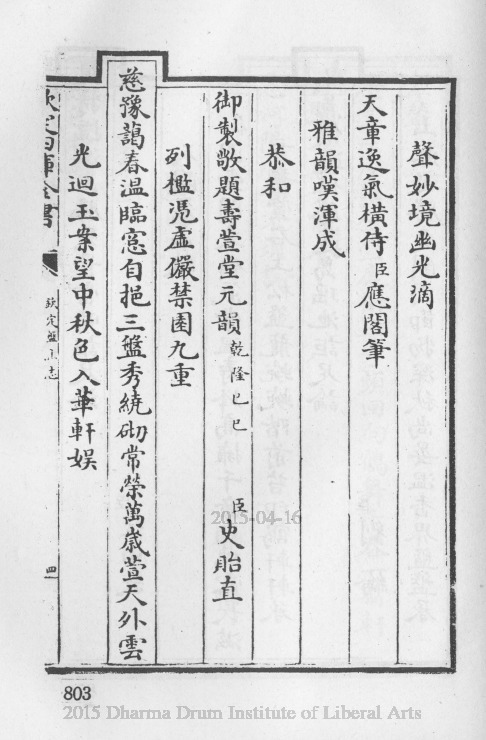 聲妙境幽光滴
天章逸氣橫侍臣應閣筆
雅韻嘆渾成
恭和
御製敬題壽萱堂元韻乾隆己巳
臣史貽直
列檻憑虛儼禁園九重
慈豫藹春溫臨窻自挹三盤秀繞砌常榮萬歲萱天外雲
光迴玉案望中秋色入華軒娯
欽定四庫全書
欽定盤山志
四
2015-04-16
803
2015 Dharma Drum Institute of Liberal Arts